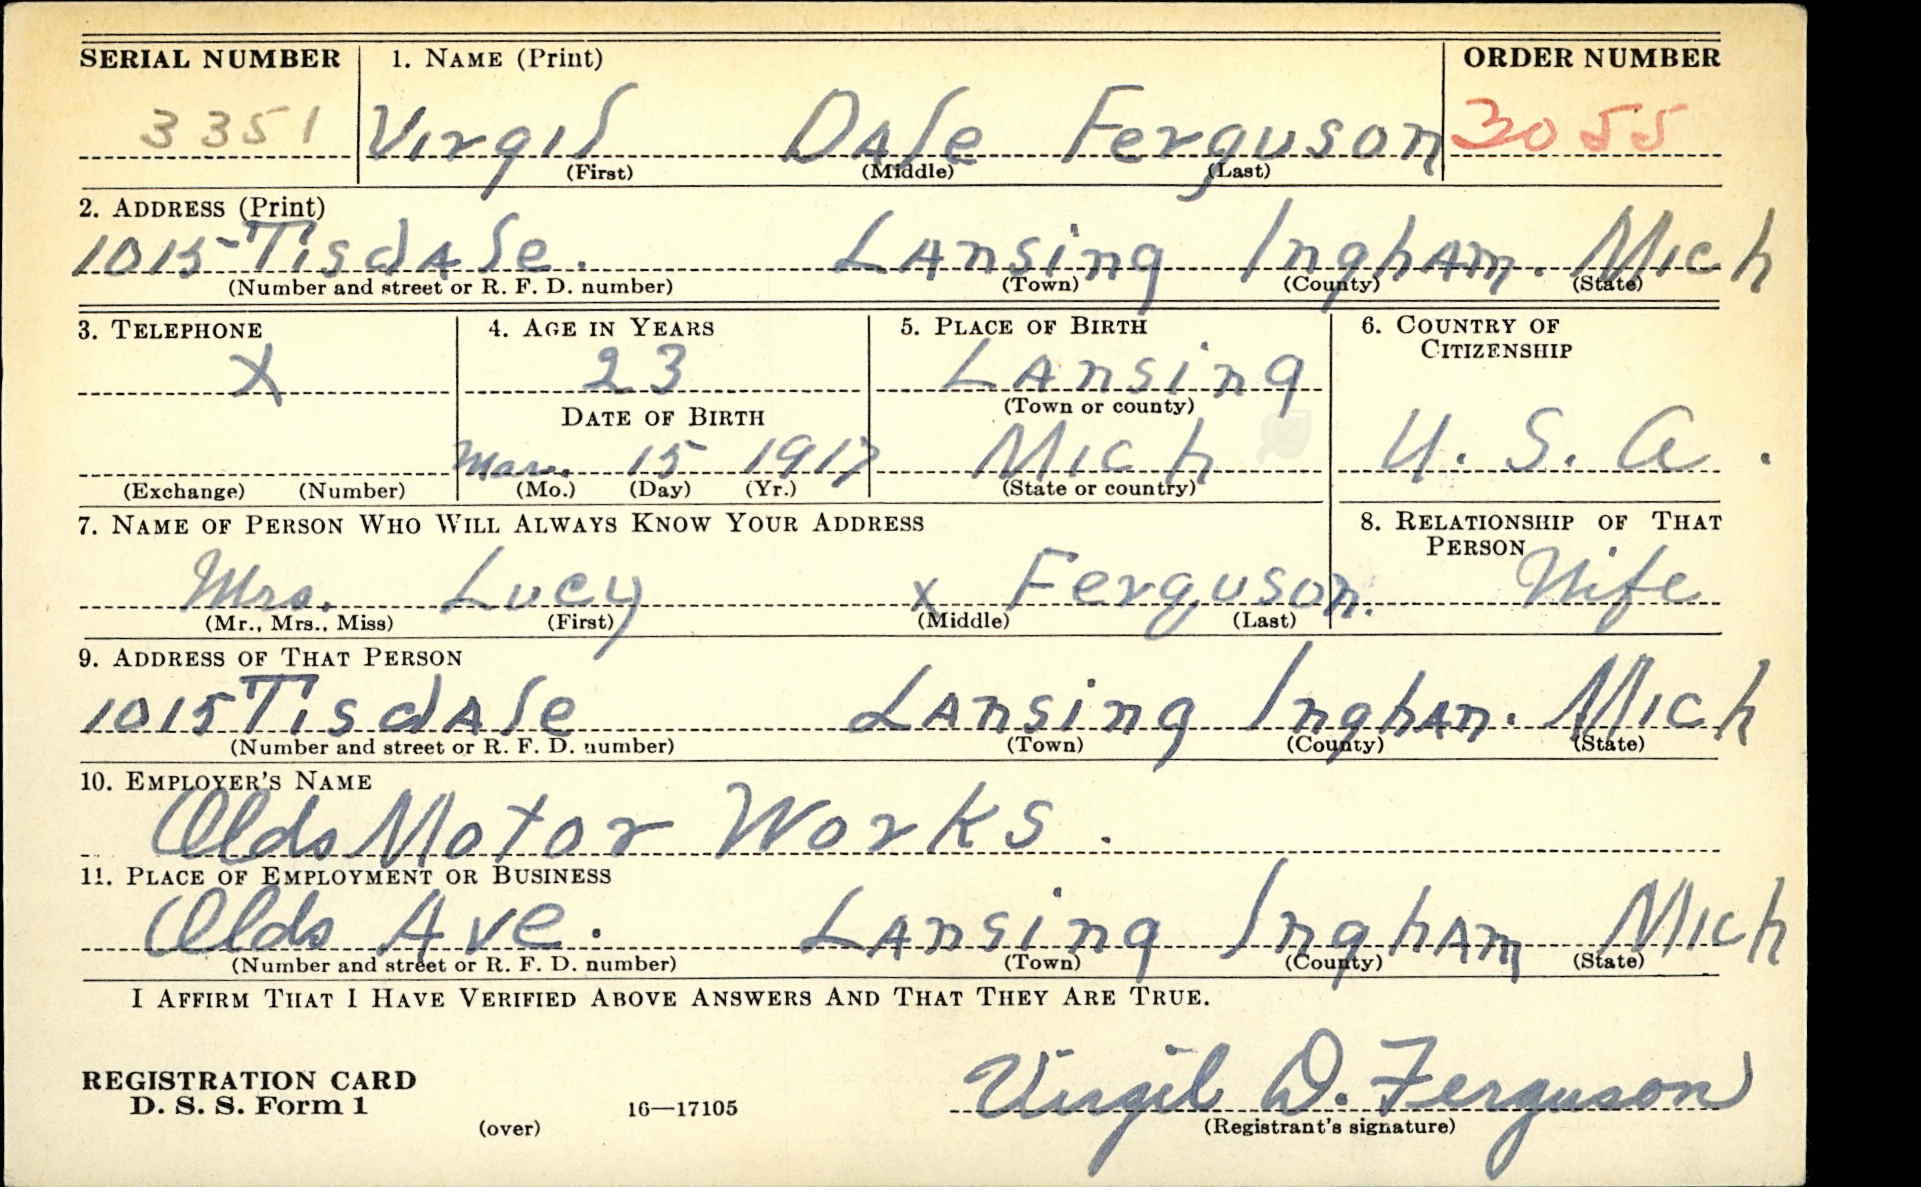 SERIAL NUMBER 1. NAME (Print) ORDER NUMBER
3351 Virgil Dale Ferguson 3055
(First) (Middle) (Last)
2. ADDRESS (Print)
1015 Tisdale. Lansing Ingham. Mich
(Number and street or R. F. D. number) (Town) (County) (State)
3. TELEPHONE 4. AGE IN YEARS 5. PLACE OF BIRTH 6. COUNTRY OF
CITIZENSHIP
X 23 Lansing
(Town or county)
DATE OF BIRTH
Mar. 15 1917 Mich U. S. A.
(Exchange) (Number) (Mo.) (Day) (Yr.) (State or country)
7. NAME OF PERSON WHO WILL ALWAYS KNOW YOUR ADDRESS 8. RELATIONSHIP OF THAT
PERSON
Mrs. Lucy x Ferguson. Wife
(Mr., Mrs., Miss) (First) (Middle) (Last)
9. ADDRESS OF THAT PERSON
1015 Tisdale Lansing Inghan. Mich
(Number and street or R. F. D. number) (Town) (County) (State)
10. EMPLOYER'S NAME
Olds Motor Works.
11. PLACE OF EMPLOYMENT OR BUSINESS
Olds Ave. Lansing Ingham Mich
(Number and street or R. F. D. number) (Town) (County) (State)
I AFFIRM THAT I HAVE VERIFIED ABOVE ANSWERS AND THAT THEY ARE TRUE.
REGISTRATION CARD
D. S. S. Form 1 16—17105 Virgil D. Ferguson
(over) (Registrant's signature)